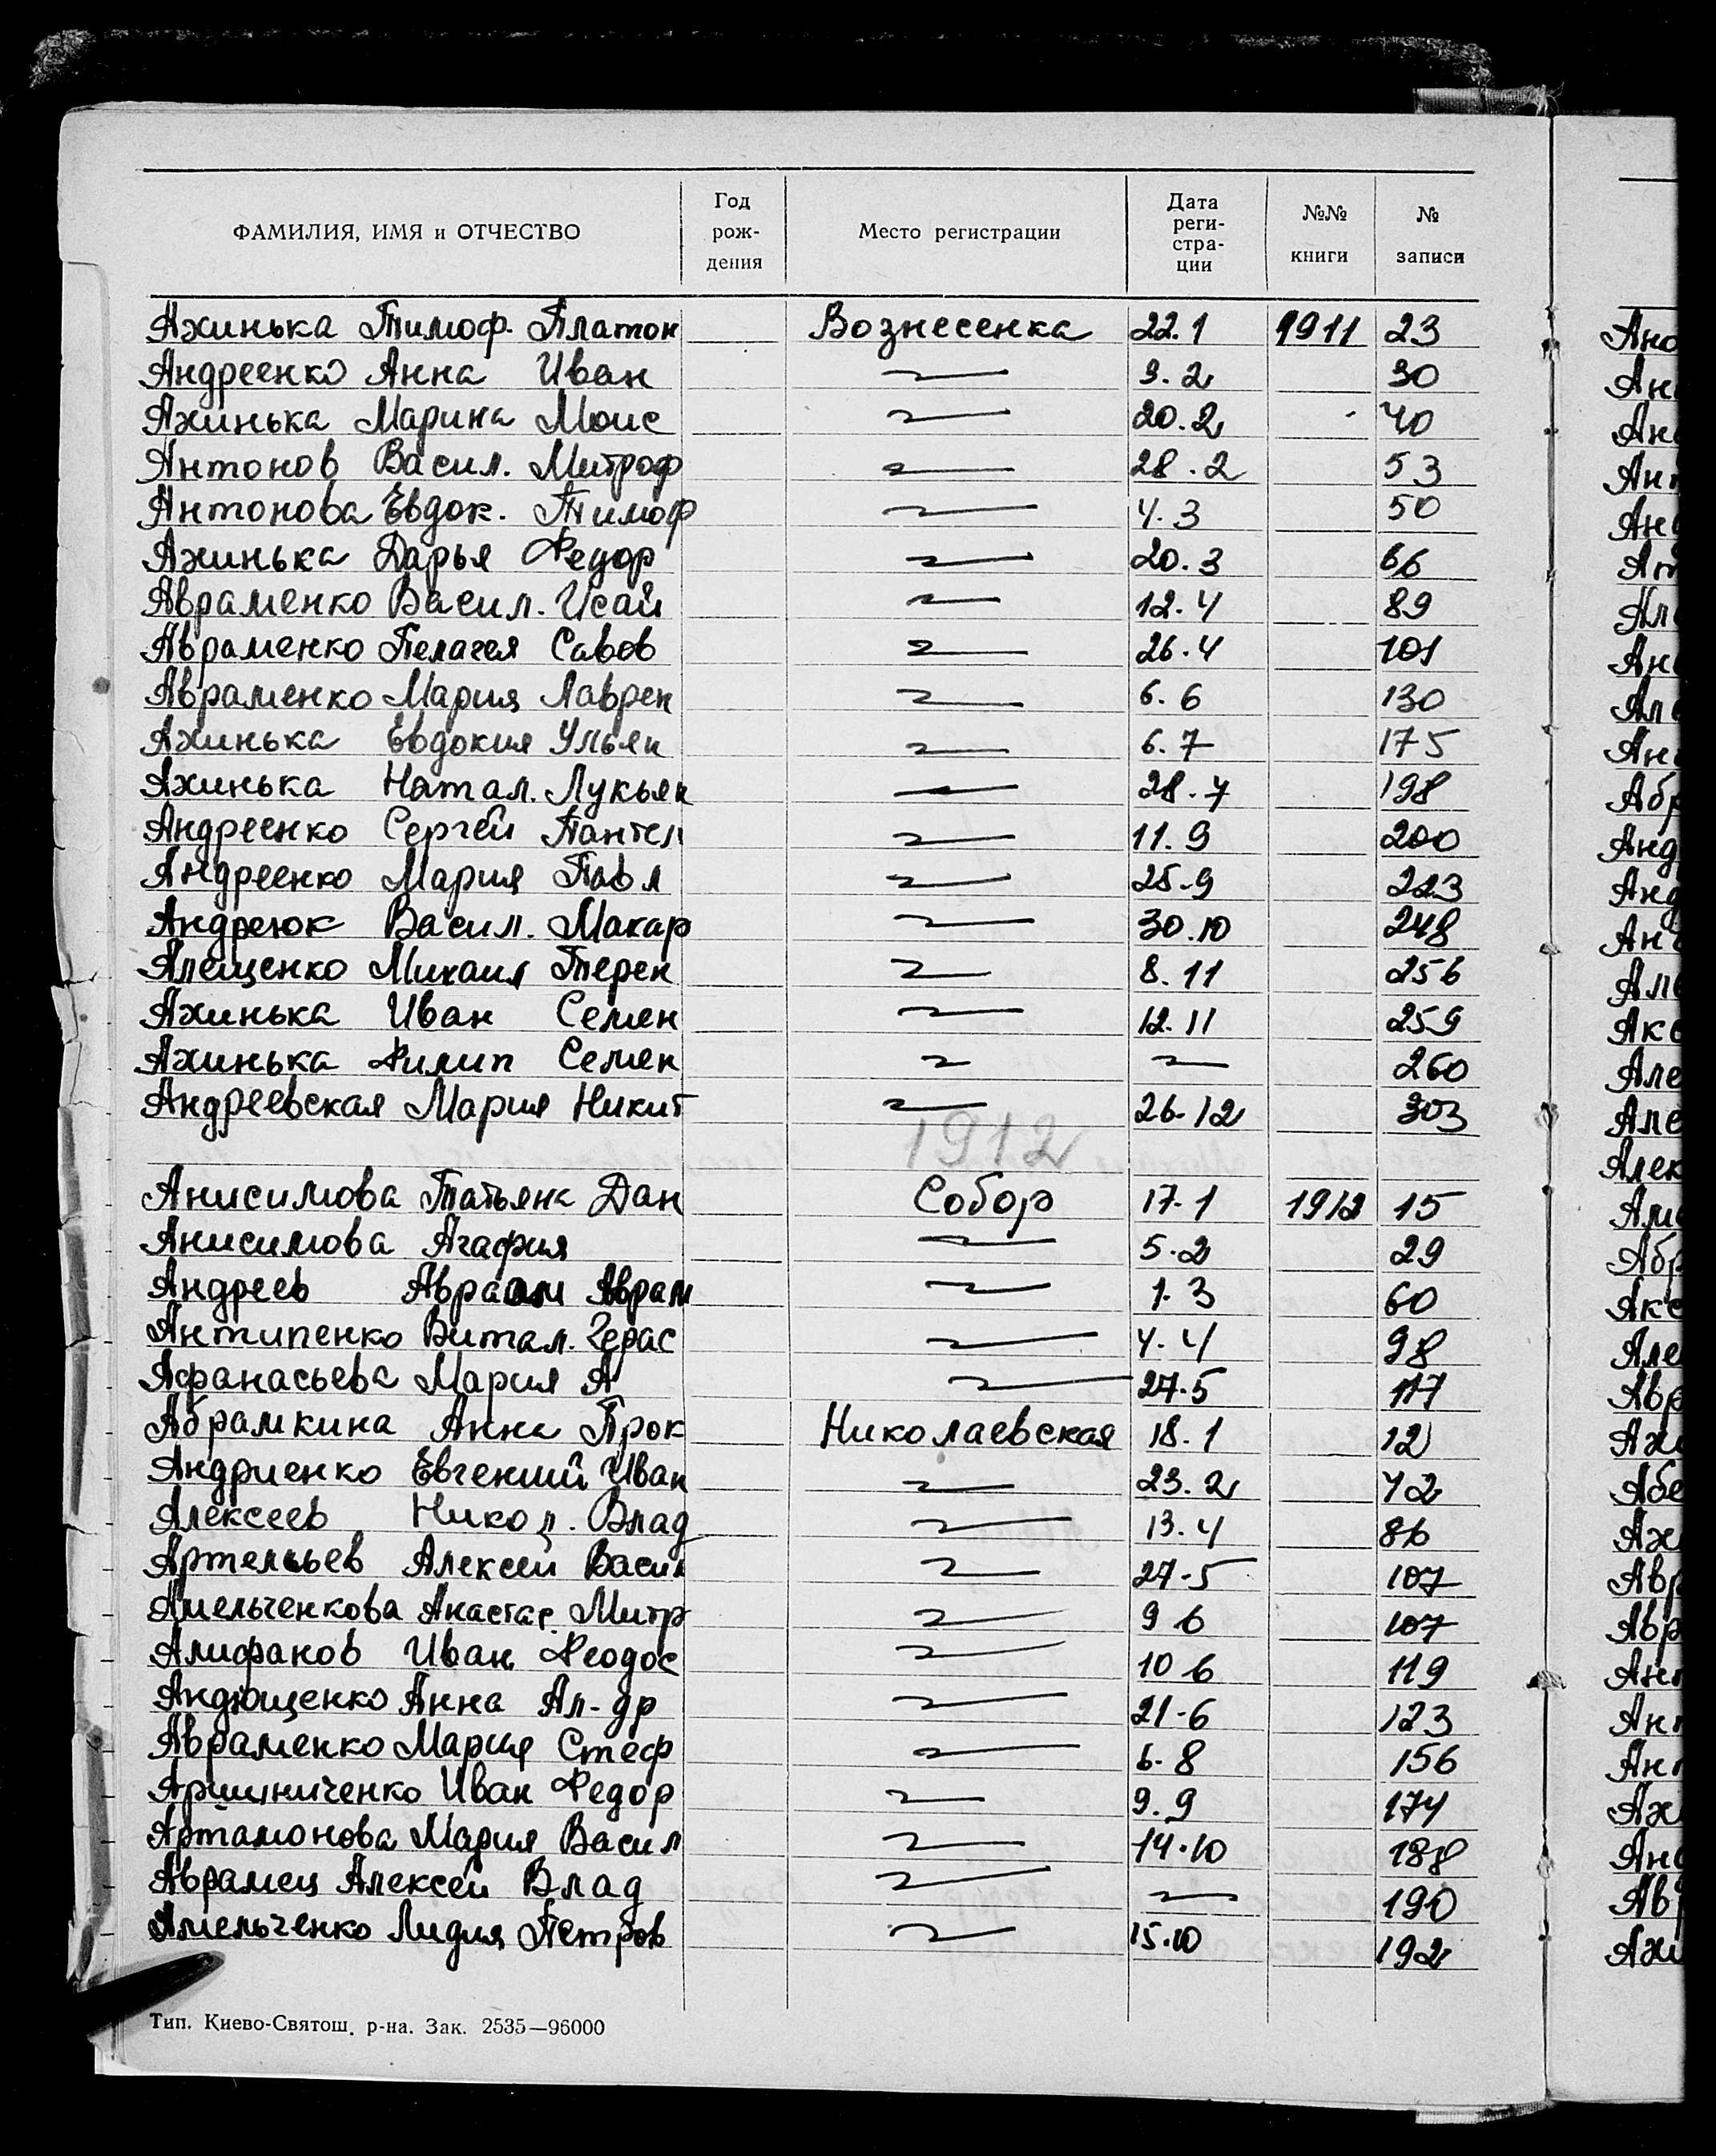 ФАМИЛИЯ, ИМЯ и ОТЧЕСТВО Год рождения Место регистрации Дата регистрации №№ книги № записи
Ахинька Тимоф. Платон Вознесенка 22.1 1911 23
Андреенко Анна Иван 〃 9.2 30
Ахинька Марина Моис 〃 20.2 40
Антонов Васил. Митроф 〃 28.2 53
Антонова Евдок. Тимоф 〃 4.3 50
Ахинька Дарья Федор 〃 20.3 66
Авраменко Васил. Исай 〃 12.4 89
Авраменко Пелагея Савов 〃 26.4 101
Авраменко Мария Лаврен 〃 6.6 130
Ахинька Евдокия Ульян 〃 6.7 175
Ахинька Натал. Лукьян 〃 28.7 198
Андреенко Сергей Пантел 〃 11.9 200
Андреенко Мария Павл 〃 25.9 223
Андреюк Васил. Макар 〃 30.10 248
Алещенко Михаил Терен 〃 8.11 256
Ахинька Иван Семен 〃 12.11 259
Ахинька Филип Семен 〃 〃 260
Андреевская Мария Никит 〃 26.12 303
1912
Анисимова Татьяна Дан Собор 17.1 1912 15
Анисимова Агафия 〃 5.2 29
Андреев Авраам Аврам 〃 1.3 60
Антипенко Витал. Герас 〃 4.4 98
Афанасьева Мария А 〃 27.5 117
Абрамкина Анна Прок Николаевская 18.1 12
Андриенко Евгений Иван 〃 23.2 42
Алексеев Никол. Влад 〃 13.4 86
Артемьев Алексей Васил 〃 27.5 107
Амельченкова Анастас. Митр 〃 9 6 107
Алифанов Иван Феодос 〃 10 6 119
Андющенко Анна Ал-др 〃 21.6 123
Авраменко Мария Стеф 〃 6.8 156
Иван Федор 〃 9.9 174
Артамонова Мария Васил 〃 14.10 188
Аврамец Алексей Влад 〃 〃 190
Амельченко Лидия Петров 〃 15.10 192
Тип. Киево-Святош. р-на. Зак. 2535—96000